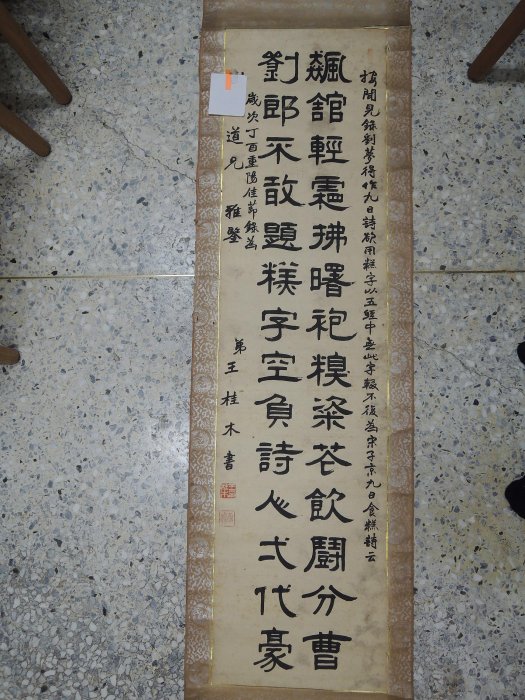 按聞見錄劉夢得作九日詩欲用糕字以五經中無此字輟不復為宋子京九日食糕詩云
飆舘輕霜拂曙袍糗粢花飲鬪分曹
劉郎不敢題糕字空負詩心弌代豪
歲次丁酉重陽佳節錄為
道兄 雅鑒
弟王桂木書